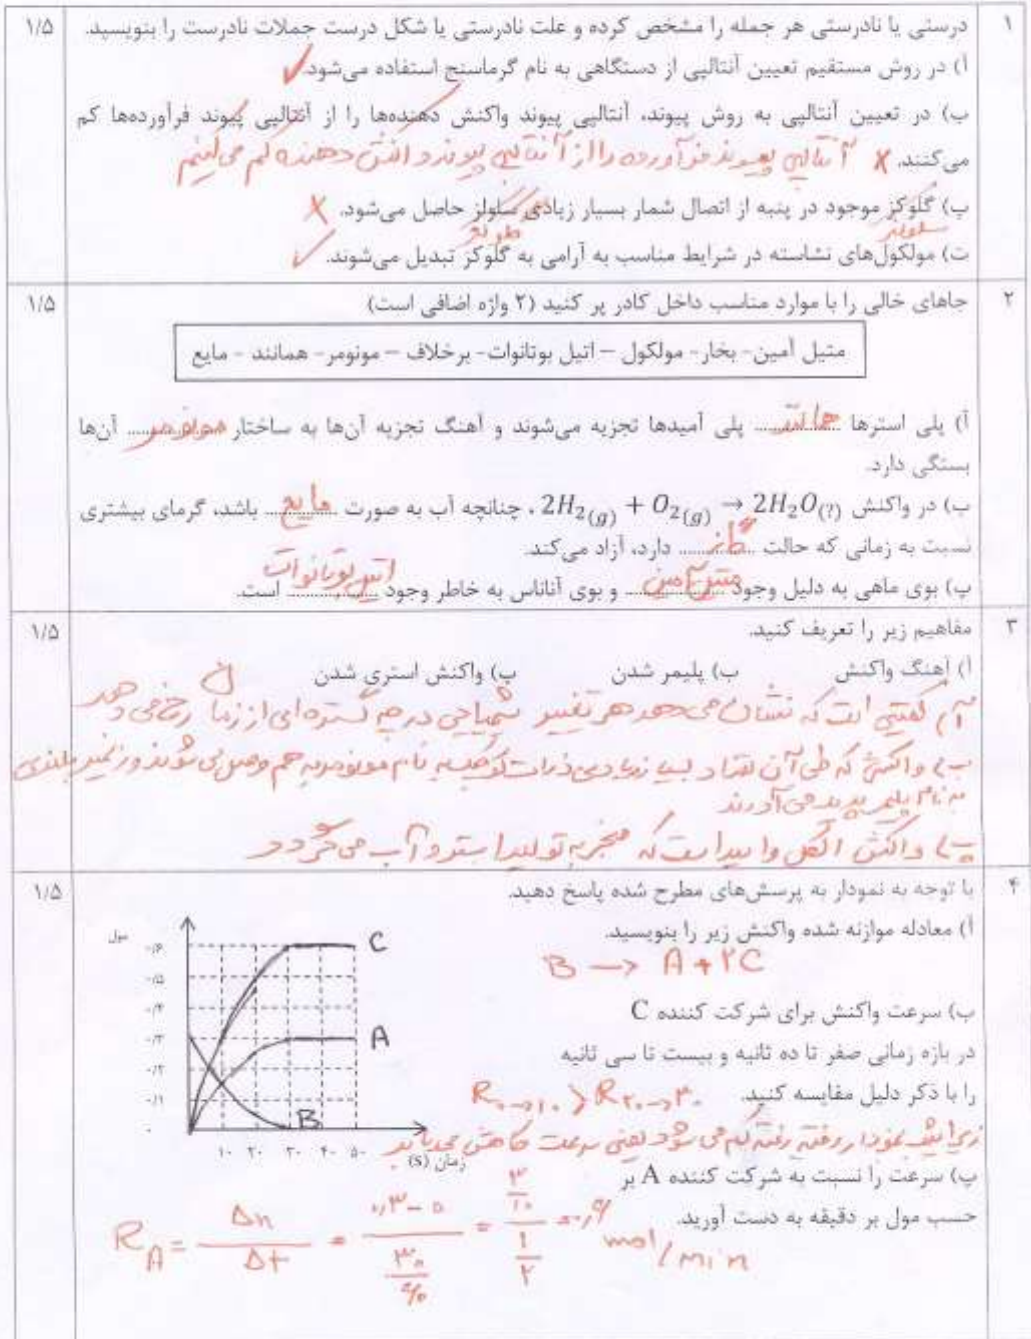 ۱ درستی یا نادرستی هر جمله را مشخص کرده و علت نادرستی یا شکل درست جملات نادرست را بنویسید. ۱/۵
آ) در روش مستقیم تعیین آنتالپی از دستگاهی به نام گرماسنج استفاده می‌شود. ✓
ب) در تعیین آنتالپی به روش پیوند، آنتالپی پیوند واکنش دهنده‌ها را از آنتالپی پیوند فرآورده‌ها کم
می‌کنند. ✗ آنتالپی پیوند فرآورده را از آنتالپی پیوند واکنش دهنده کم می‌کنیم
پ) گلوکز موجود در پنبه از اتصال شمار بسیار زیادی سلولز حاصل می‌شود. ✗
سلولز گلوکز
ت) مولکول‌های نشاسته در شرایط مناسب به آرامی به گلوکز تبدیل می‌شوند. ✓
۲ جاهای خالی را با موارد مناسب داخل کادر پر کنید (۲ واژه اضافی است) ۱/۵
متیل آمین- بخار- مولکول – اتیل بوتانوات- برخلاف – مونومر- همانند - مایع
آ) پلی استرها همانند پلی آمیدها تجزیه می‌شوند و آهنگ تجزیه آن‌ها به ساختار مونومر آن‌ها
بستگی دارد.
ب) در واکنش 2H2(g) + O2(g) → 2H2O(?) ، چنانچه آب به صورت مایع باشد، گرمای بیشتری
نسبت به زمانی که حالت گاز دارد، آزاد می‌کند.
پ) بوی ماهی به دلیل وجود متیل آمین و بوی آناناس به خاطر وجود اتیل بوتانوات است.
۳ مفاهیم زیر را تعریف کنید. ۱/۵
آ) آهنگ واکنش ب) پلیمر شدن پ) واکنش استری شدن
آ) کمیتی است که نشان می‌دهد هر تغییر شیمیایی در چه گستره ای از زمان رخ می‌دهد
ب) واکنش که طی آن تعداد بسیار زیادی ذرات کوچک به نام مونومر به هم وصل می‌شوند و زنجیر بلندی
به نام پلیمر پدید می‌آورند
پ) واکنش الکل و اسید است که منجر به تولید استر و آب می‌گردد
۴ با توجه به نمودار به پرسش‌های مطرح شده پاسخ دهید. ۱/۵
آ) معادله موازنه شده واکنش زیر را بنویسید.
B → A + ۲C
ب) سرعت واکنش برای شرکت کننده C
در بازه زمانی صفر تا ده ثانیه و بیست تا سی ثانیه
را با ذکر دلیل مقایسه کنید. R۰→۱۰ > R۲۰→۳۰
زیرا شیب نمودار رفته رفته کم می‌شود یعنی سرعت کاهش می‌یابد
پ) سرعت را نسبت به شرکت کننده A بر
حسب مول بر دقیقه به دست آورید.
R_A = Δn/Δt = (۰٫۳ - ۰)/(۳۰/۶۰) = (۳/۱۰)/(۱/۲) = ۰٫۶ mol/min
مول
۰/۶
۰/۵
۰/۴
۰/۳
۰/۲
۰/۱
۰
C
A
B
۱۰ ۲۰ ۳۰ ۴۰ ۵۰
زمان (s)